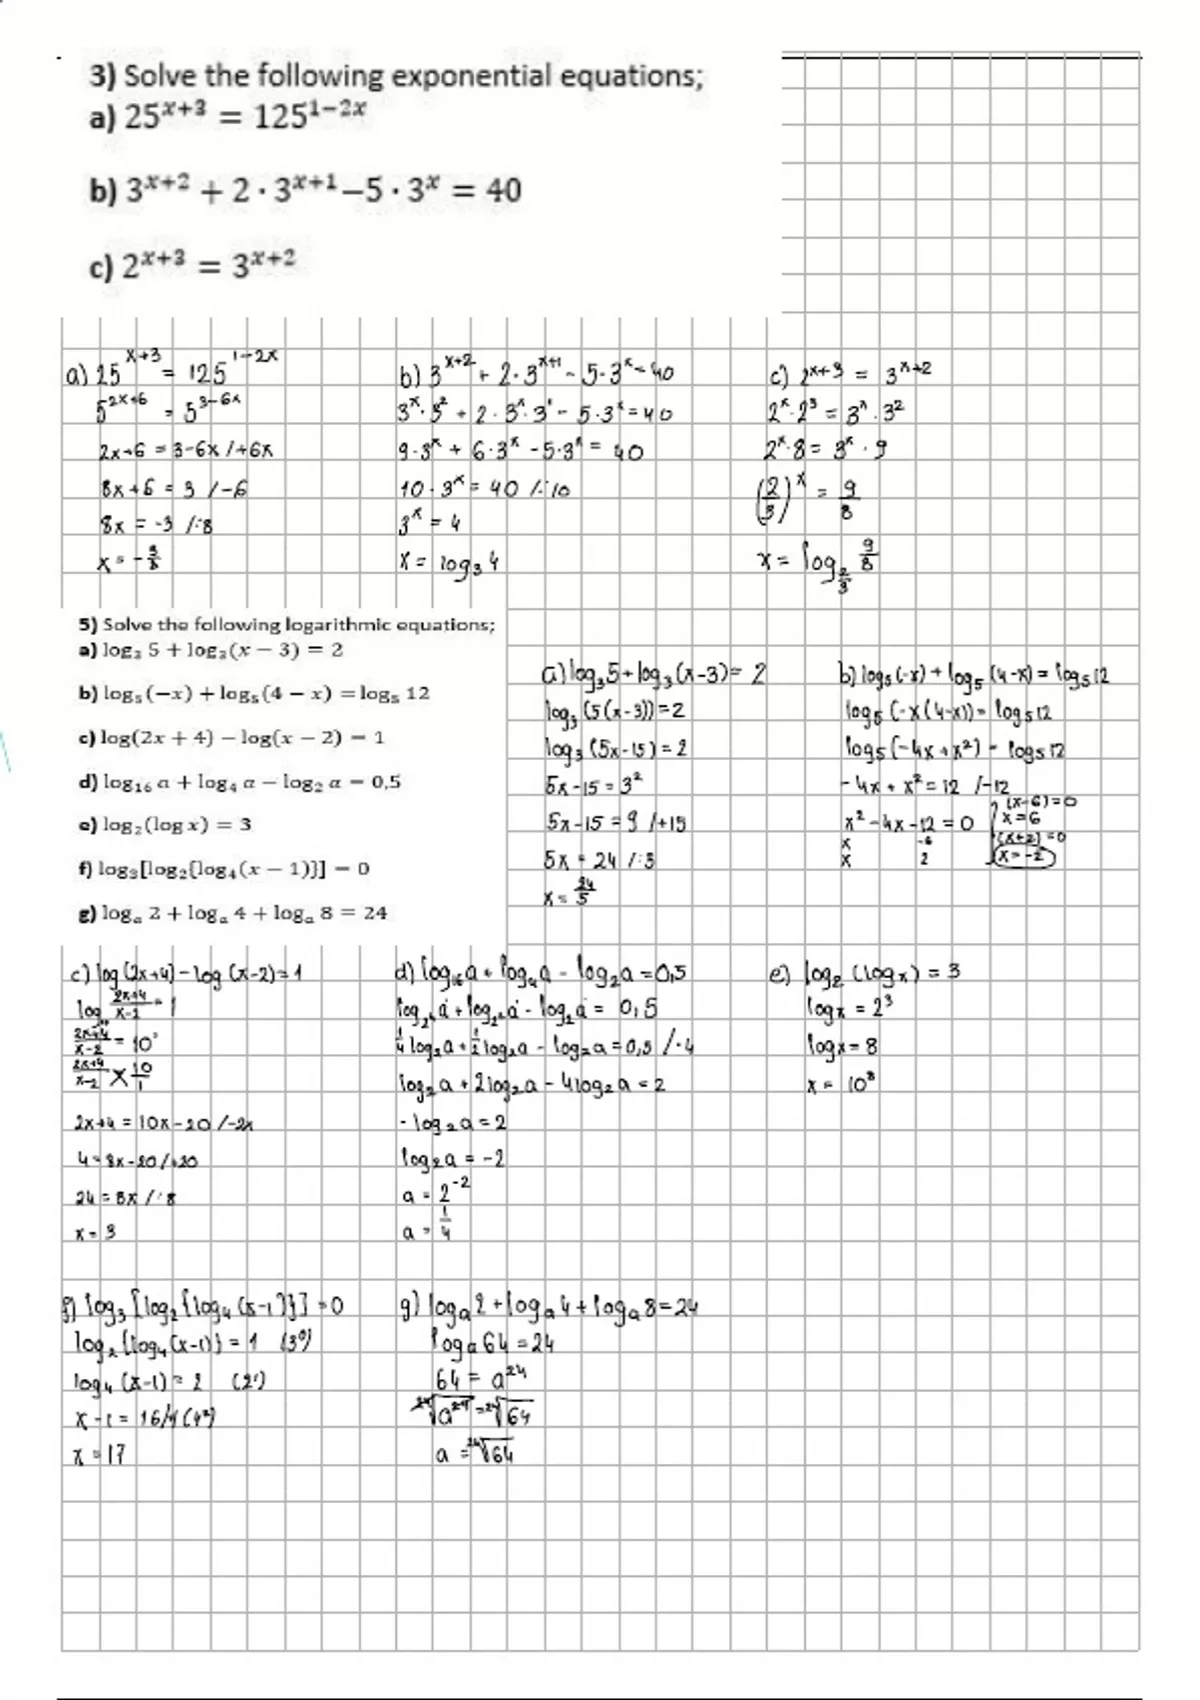 3) Solve the following exponential equations;
a) 25^{x+3} = 125^{1−2x}
b) 3^{x+2} + 2 · 3^{x+1} − 5 · 3^x = 40
c) 2^{x+3} = 3^{x+2}
a) 25^{x+3} = 125^{1-2x}
5^{2x+6} = 5^{3-6x}
2x+6 = 3-6x /+6x
8x+6 = 3 /-6
8x = -3 /:8
x = -3/8
b) 3^{x+2} + 2·3^{x+1} - 5·3^x = 40
3^x·3^2 + 2·3^x·3^1 - 5·3^x = 40
9·3^x + 6·3^x - 5·3^x = 40
10·3^x = 40 /:10
3^x = 4
x = log_3 4
c) 2^{x+3} = 3^{x+2}
2^x·2^3 = 3^x·3^2
2^x·8 = 3^x·9
(2/3)^x = 9/8
x = log_{2/3} 9/8
5) Solve the following logarithmic equations;
a) log_3 5 + log_3(x − 3) = 2
b) log_5(−x) + log_5(4 − x) = log_5 12
c) log(2x + 4) − log(x − 2) = 1
d) log_16 a + log_4 a − log_2 a = 0,5
e) log_2(log x) = 3
f) log_3[log_2{log_4(x − 1)}] = 0
g) log_a 2 + log_a 4 + log_a 8 = 24
a) log_3 5 + log_3 (x-3) = 2
log_3 (5(x-3)) = 2
log_3 (5x-15) = 2
5x-15 = 3^2
5x-15 = 9 /+15
5x = 24 /:5
x = 24/5
b) log_5 (-x) + log_5 (4-x) = log_5 12
log_5 (-x(4-x)) = log_5 12
log_5 (-4x+x^2) = log_5 12
-4x + x^2 = 12 /-12
x^2-4x-12 = 0
x -6
x 2
(x-6)=0
x=6
(x+2)=0
x=-2
c) log (2x+4) - log (x-2) = 1
log 2x+4/x-2 = 1
2x+4/x-2 = 10^1
2x+4/x-2 × 10/1
2x+4 = 10x-20 /-2x
4 = 8x-20 /+20
24 = 8x /:8
x = 3
d) log_16 a + log_4 a - log_2 a = 0,5
log_{2^4} a + log_{2^2} a - log_2 a = 0,5
1/4 log_2 a + 1/2 log_2 a - log_2 a = 0,5 /·4
log_2 a + 2 log_2 a - 4 log_2 a = 2
- log_2 a = 2
log_2 a = -2
a = 2^{-2}
a = 1/4
e) log_2 (log x) = 3
log x = 2^3
log x = 8
x = 10^8
f) log_3 [log_2 {log_4 (x-1)}] = 0
log_2 {log_4 (x-1)} = 1 (3^0)
log_4 (x-1) = 2 (2^1)
x-1 = 16/1 (4^2)
x = 17
g) log_a 2 + log_a 4 + log_a 8 = 24
log_a 64 = 24
64 = a^{24}
^{24}√a^{24} = ^{24}√64
a = ^{24}√64